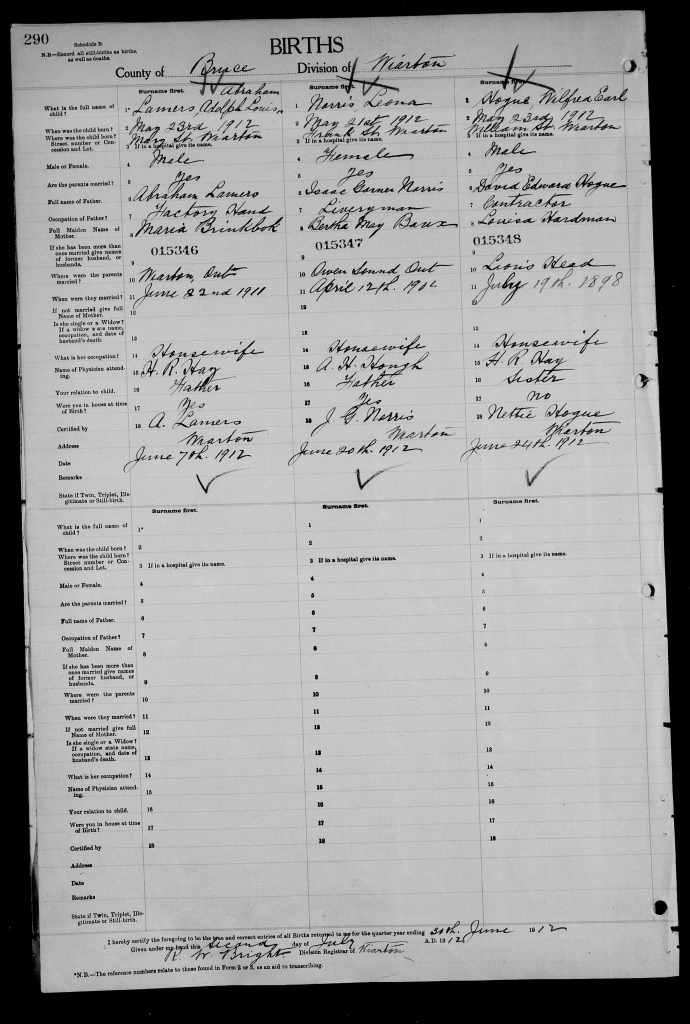 290
Schedule B
N.B.—Record all still-births as births, as well as deaths.
BIRTHS
County of Bruce Division of Wiarton
Surname first. Surname first. Surname first.
What is the full name of child? 1* Lamers Adolph Louis Abraham 1 Norris Leona 1 Hogue Wilfred Earl
When was the child born? 2 May 23rd 1912 2 May 21st 1912 2 May 23rd 1912
Where was the child born? Street number or Concession and Lot. 3 If in a hospital give its name. Mary St. Wiarton 3 If in a hospital give its name. Frank St. Wiarton 3 If in a hospital give its name. William St. Wiarton
Male or Female. 4 Male 4 Female 4 Male
Are the parents married? 5 Yes 5 Yes 5 Yes
Full name of Father. 6 Abraham Lamers 6 Isaac Garner Norris 6 David Edward Hogue
Occupation of Father? 7 Factory Hand 7 Liveryman 7 Contractor
Full Maiden Name of Mother. 8 Maria Brinkbok 8 Bertha May 8 Louisa Hardman
015346 015347 015348
If she has been more than once married give names of former husband, or husbands. 9 9 9
Where were the parents married? 10 Wiarton, Ont 10 Owen Sound Ont 10 Lion's Head
When were they married? 11 June 22nd 1911 11 April 12th. 1902 11 July 19th. 1898
If not married give full Name of Mother. 12 12
Is she single or a Widow? If a widow state name, occupation, and date of husband's death. 13
What is her occupation? 14 Housewife 14 Housewife 14 Housewife
Name of Physician attending. 15 H. R. Hay 15 A. H. Hough 15 H. R. Hay
Your relation to child. 16 Father 16 Father 16 Sister
Were you in house at time of Birth? 17 Yes 17 Yes 17 No
Certified by 18 A. Lamers 18 J. G. Norris 18 Nettie Hogue
Address Wiarton Wiarton Wiarton
Date June 7th. 1912 June 20th. 1912 June 24th. 1912
Remarks
State if Twin, Triplet, Illegitimate or Still-birth.
Surname first. Surname first. Surname first.
What is the full name of child? 1* 1 1
When was the child born? 2 2 2
Where was the child born? Street number or Concession and Lot. 3 If in a hospital give its name. 3 If in a hospital give its name. 3 If in a hospital give its name.
Male or Female. 4 4 4
Are the parents married? 5 5 5
Full name of Father. 6 6 6
Occupation of Father? 7 7 7
Full Maiden Name of Mother. 8 8 8
If she has been more than once married give names of former husband, or husbands. 9 9 9
Where were the parents married? 10 10 10
When were they married? 11 11 11
If not married give full Name of Mother. 12 12 12
Is she single or a Widow? If a widow state name, occupation, and date of husband's death. 13 13 13
What is her occupation? 14 14 14
Name of Physician attending. 15 15 15
Your relation to child. 16 16 16
Were you in house at time of Birth? 17 17 17
Certified by 18 18 18
Address
Date
Remarks
State if Twin, Triplet, Illegitimate or Still-birth.
I hereby certify the foregoing to be the true and correct entries of all Births returned to me for the quarter year ending 30th June 1912
Given under my hand this second day of July A.D. 1912
R. W. Bright Division Registrar of Wiarton
*N.B.—The reference numbers relate to those found in Form 2 or 3, as an aid to transcribing.